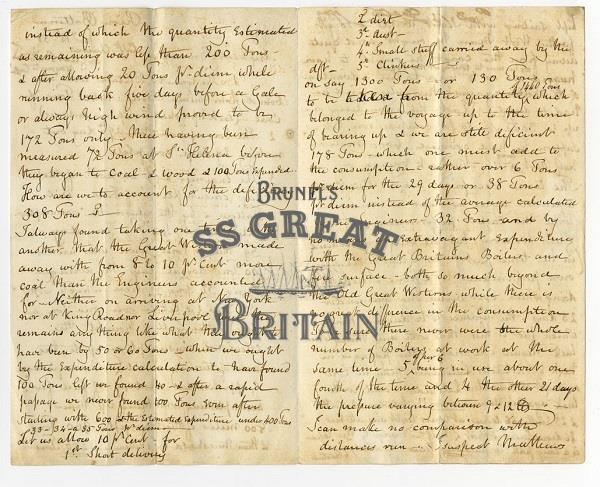 instead of which the quantity Estimated
as remaining was less than 200 Tons
& after allowing 20 Tons pr diem while
running back five days before a Gale
or always high wind proved to be
172 Tons only - there having been
measured 72 Tons at St Helena before
they began to Coal - & wood & 100 Tons Expended
How are we to account for the
308 Tons
I always found taking one
another that the Great Western made
away with from 8 to 10 pr Cent more
coal than the Engineers accounted
for - Neither on arriving at New York
nor at King Road nor Liverpool
remains any thing like what they ought to
have been by 50 or 60 Tons - when we ought
by the Expenditure calculation to have found
100 Tons left we found 40 - & after a rapid
passage we never found 100 Tons even after
starting with 600 & the Estimated Expenditure under 400 Tons
33 - 34 - a 35 Tons pr diem
Let us allow 10 pr Cent - for
1st Short delivery
2 dirt
3d Dust -
4th Small stuff carried away by the
dft - 5th Clinkers
on say 1300 Tons - or 130 Tons
to be from the quantity 1460 Tons which
belonged to the voyage up to the time
of bearing up & we are still deficient
178 Tons - which one must add to
the consumption - rather over 6 Tons
pr diem for the 29 days or 38 Tons
pr diem instead of the average calculated
Engineers 32 Tons and by
no extravagant Expenditure
with the Great Britains Boilers and
fire surface - both so much beyond
the Old Great Westerns while there is
difference in the consumption
there never were the whole
number of Boilers at work at the
same time 5 or per 6 being in use about one
fourth of the time and 4 the other 21 days
the pressure varying between 9 & 12 lb
I can make no comparison with
distances run - I suspect Mathews
BRUNEL'S
SS GREAT
BRITAIN